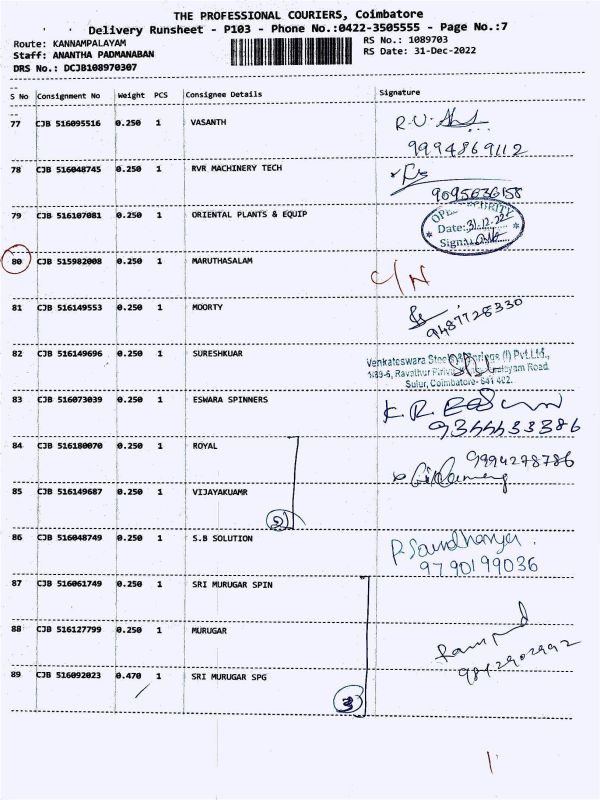 THE PROFESSIONAL COURIERS, Coimbatore
Delivery Runsheet - P103 - Phone No.:0422-3505555 - Page No.:7
Route: KANNAMPALAYAM
RS No.: 1089703
Staff: ANANTHA PADMANABAN
RS Date: 31-Dec-2022
DRS No.: DCJB108970307
S No Consignment No Weight PCS Consignee Details Signature
77 CJB 516095516 0.250 1 VASANTH R.U.
9994869112
78 CJB 516048745 0.250 1 RVR MACHINERY TECH
9095636158
79 CJB 516107081 0.250 1 ORIENTAL PLANTS & EQUIP
Date: 31.12.22
Sign
80 CJB 515982008 0.250 1 MARUTHASALAM C/N
81 CJB 516149553 0.250 1 MOORTY
9487728330
82 CJB 516149696 0.250 1 SURESHKUAR
Venkateswara Steels & Springs (I) Pvt.Ltd.,
Road
Sulur, Coimbatore- 641 402.
83 CJB 516073039 0.250 1 ESWARA SPINNERS K.R.
9344433386
84 CJB 516180070 0.250 1 ROYAL 9994278786
85 CJB 516149687 0.250 1 VIJAYAKUAMR
2
86 CJB 516048749 0.250 1 S.B SOLUTION P. Soundhanya.
9790199036
87 CJB 516061749 0.250 1 SRI MURUGAR SPIN
88 CJB 516127799 0.250 1 MURUGAR
9842902992
89 CJB 516092023 0.470 1 SRI MURUGAR SPG
3